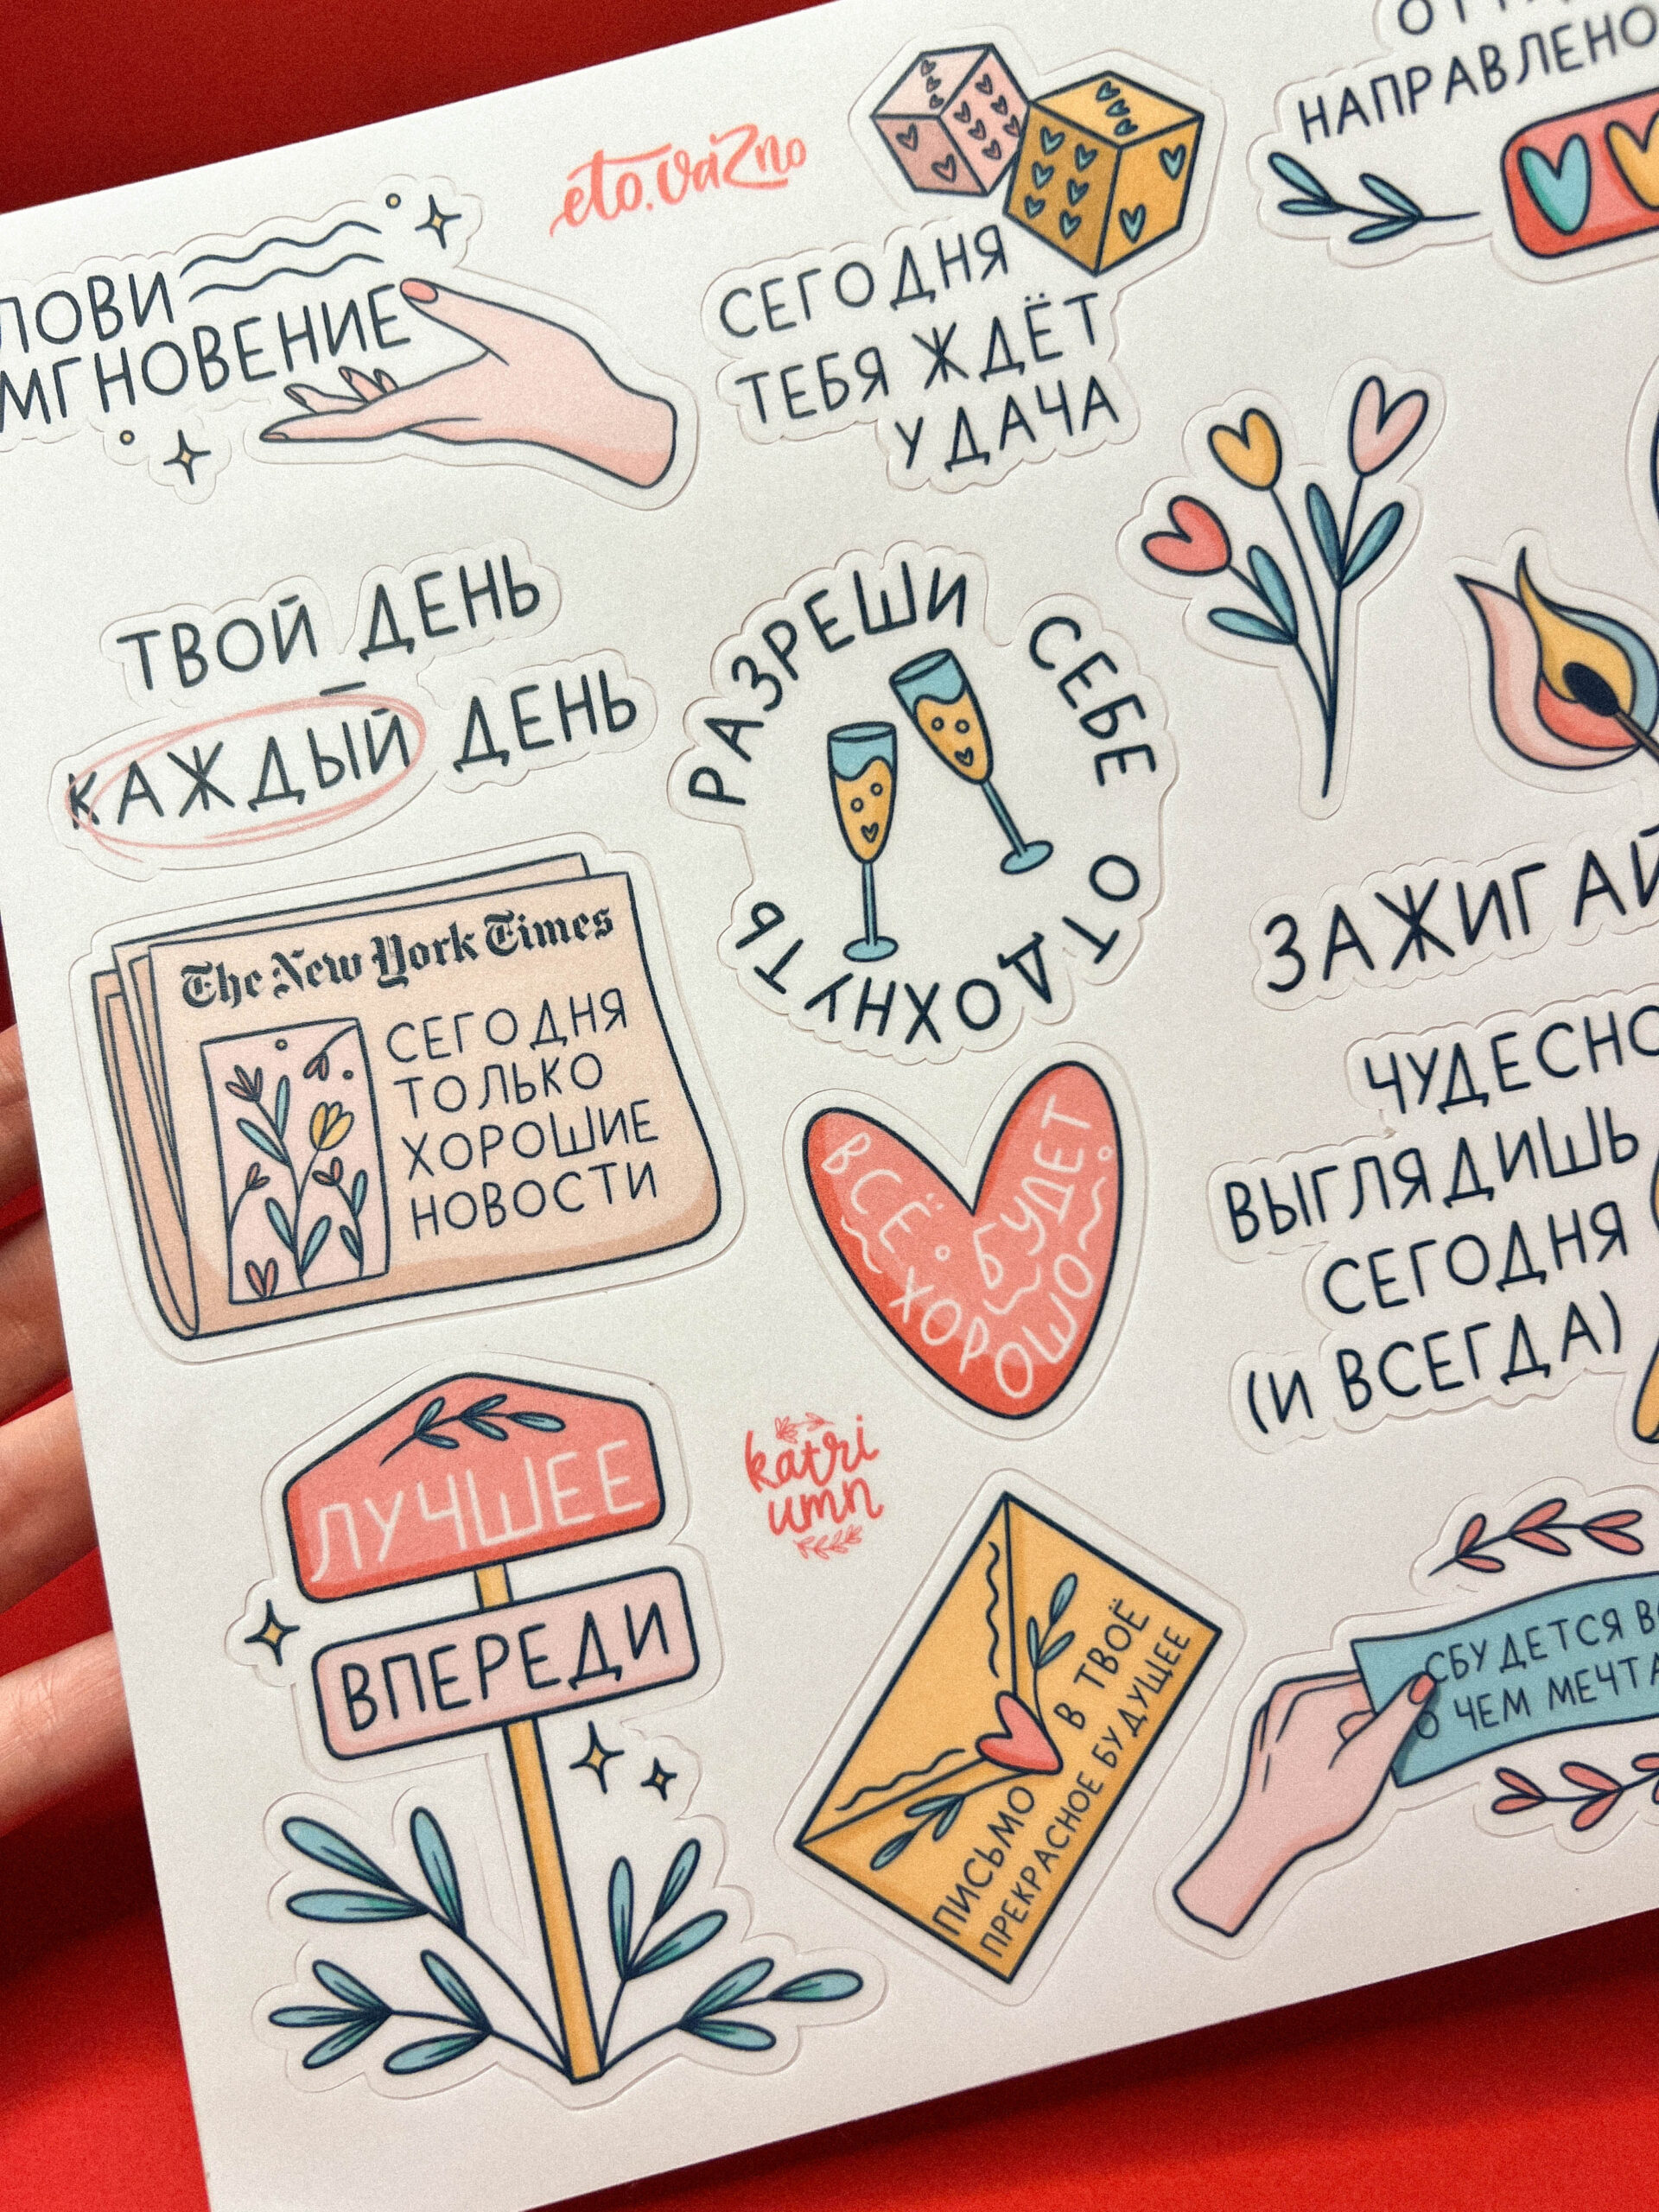 eto.vaiZno
НАПРАВЛЕНО
ЛОВИ
МГНОВЕНИЕ
СЕГОДНЯ
ТЕБЯ ЖДЁТ
УДАЧА
ТВОЙ ДЕНЬ
КАЖДЫЙ ДЕНЬ
РАЗРЕШИ СЕБЕ ОТДОХНУТЬ
The New York Times
СЕГОДНЯ
ТОЛЬКО
ХОРОШИЕ
НОВОСТИ
ЗАЖИГАЙ
ВСЁ БУДЕТ
ХОРОШО
ЧУДЕСНО
ВЫГЛЯДИШЬ
СЕГОДНЯ
(И ВСЕГДА)
ЛУЧШЕЕ
ВПЕРЕДИ
katri
umn
ПИСЬМО В ТВОЁ
ПРЕКРАСНОЕ БУДУЩЕЕ
СБУДЕТСЯ
О ЧЕМ